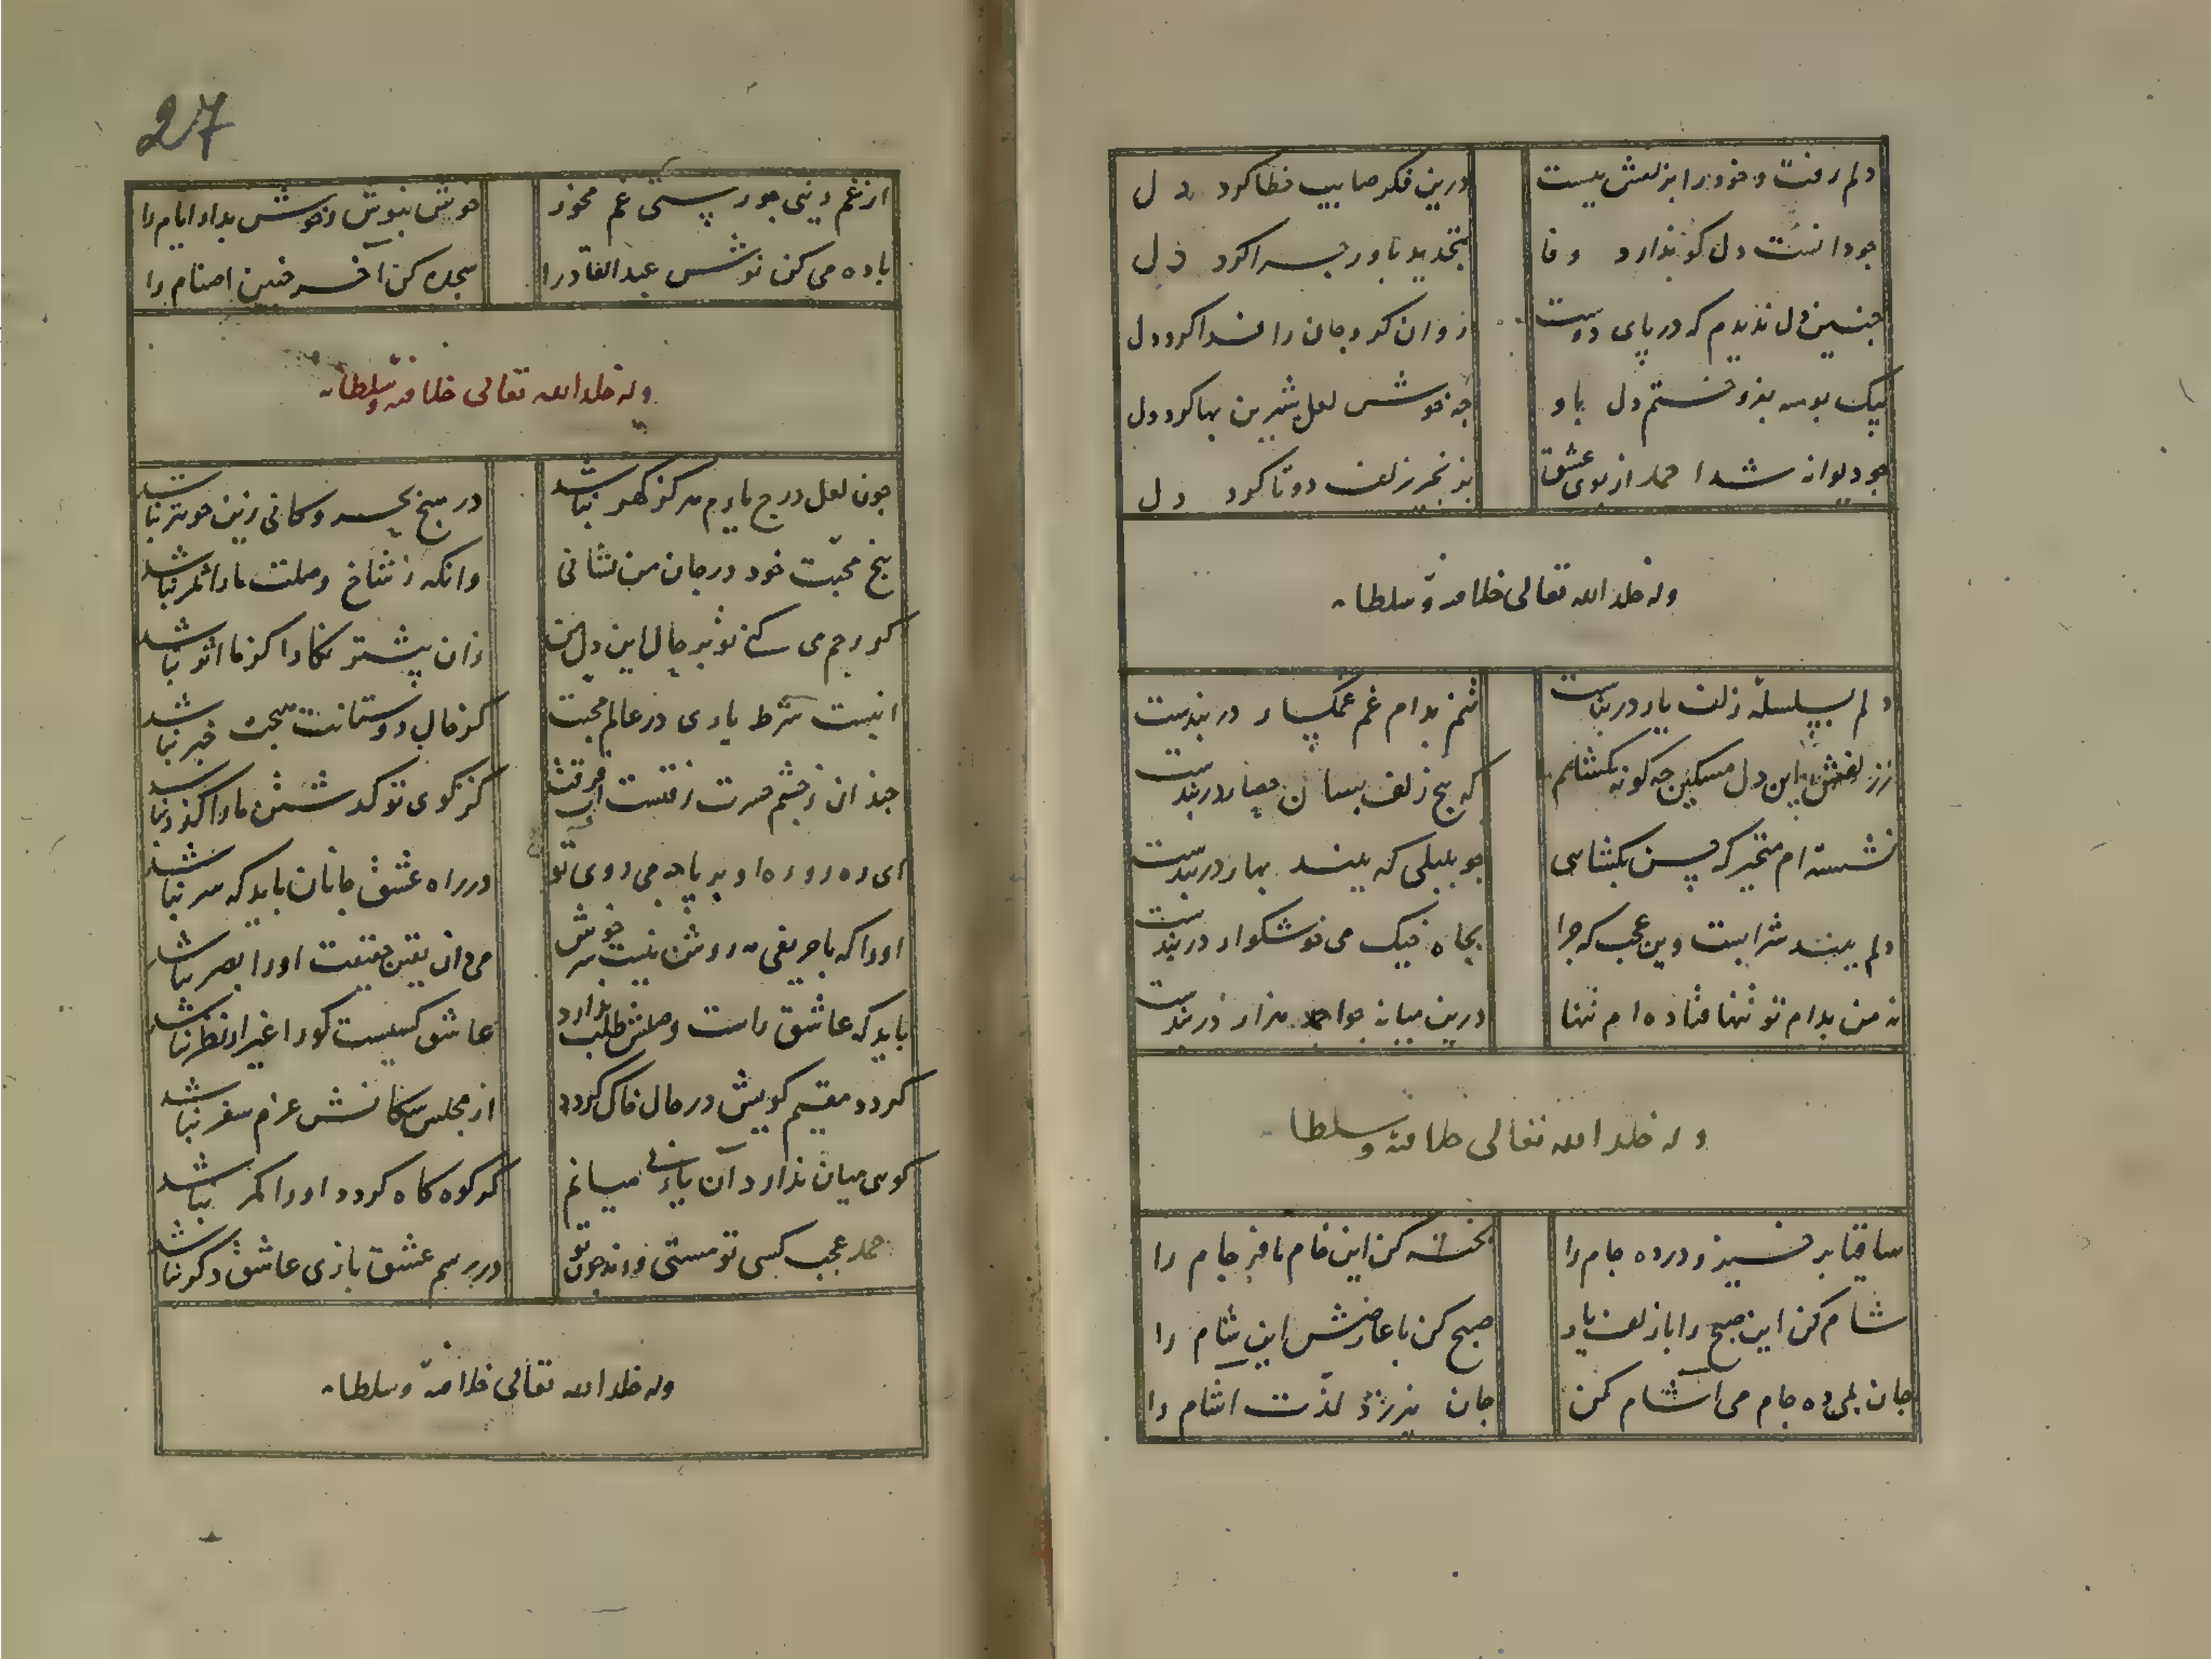 دلم رفت و خود را بزلفش ببست
درین فکر صایب خطا کرد دل
چو دانست دل کو ندارد وفا
چنین دل ندیدم که در پای دوست
روان کرد و جان را فدا کرد دل
بیک بوسه بفروختم دل باو
چه خوش لعل شیرین بها کرد دل
چو دیوانه شد احمد از بوی عشق
بزنجیر زلف دوتا کرد دل
وله خلد الله تعالی خلافته وسلطانه
دلم بسلسلهٔ زلف یار دربندست
تنم بدام غم غمگسار دربندست
زلفش این دل مسکین چه کونه بکشایم
که پیچ زلف بسان حصار دربندست
نشسته ام متحیر که چسن بکشایی
چو بلبلی که ببیند بهار دربندست
دلم ببند شرابست وین عجب که چرا
بچاه می خوشکوار دربندست
نه من بدام تو تنها فتاده ام تنها
درین میانه چو احمد هزار دربندست
وله خلد الله تعالی خلافته وسلطانه
ساقیا برخیز و درده جام را
پخته کن این خام نافرجام را
شام کن این صبح را با زلف یار
صبح کن با عارضش این شام را
جان بمی ده جام می آشام کن
جان لذت آشام را
27
از غم دینی چو رستی غم مخور
خوش بنوش و خوش بدار ایام را
باده می کن نوش عبدالقادرا
سجده کن آخر چنین اصنام را
وله خلد الله تعالی خلافته وسلطانه
چون لعل درج یارم هرگز کهر نباشد
در هیچ بحر و کانی زین خوبتر نباشد
بیخ محبت خود در جان من نشانی
وانکه ز شاخ وصلت ما را ثمر نباشد
کر رحم می کنی تو بر حال این دل من
زان پیشتر نکارا کز ما اثر نباشد
اینست شرط یاری در عالم محبت
کز حال دوستانت هیچت خبر نباشد
چندان ز چشم حسرت رفتست آب فرقت
کز کوی تو کذشتن ما را کذر نباشد
ای ره رو ره او بر پا چه می روی تو
در راه عشق جانان باید که سر نباشد
او را که با حریفی روشن نیست سر خوش
می دان یقین حقیقت او را بصر نباشد
باید که عاشق راست وصلش طلب ندارد
عاشق کسیست کو را غیر از نظر نباشد
کردد مقیم کویش در حال خاک کردد
از مجلس سکانش عزم سفر نباشد
کوی میان ندارد آن یار نی میانم
کر کوه کاه کردد او را کمر نباشد
احمد عجب کسی تو مستی و رند چون تو
در رسم عشق بازی عاشق دکر نباشد
وله خلد الله تعالی خلافته وسلطانه